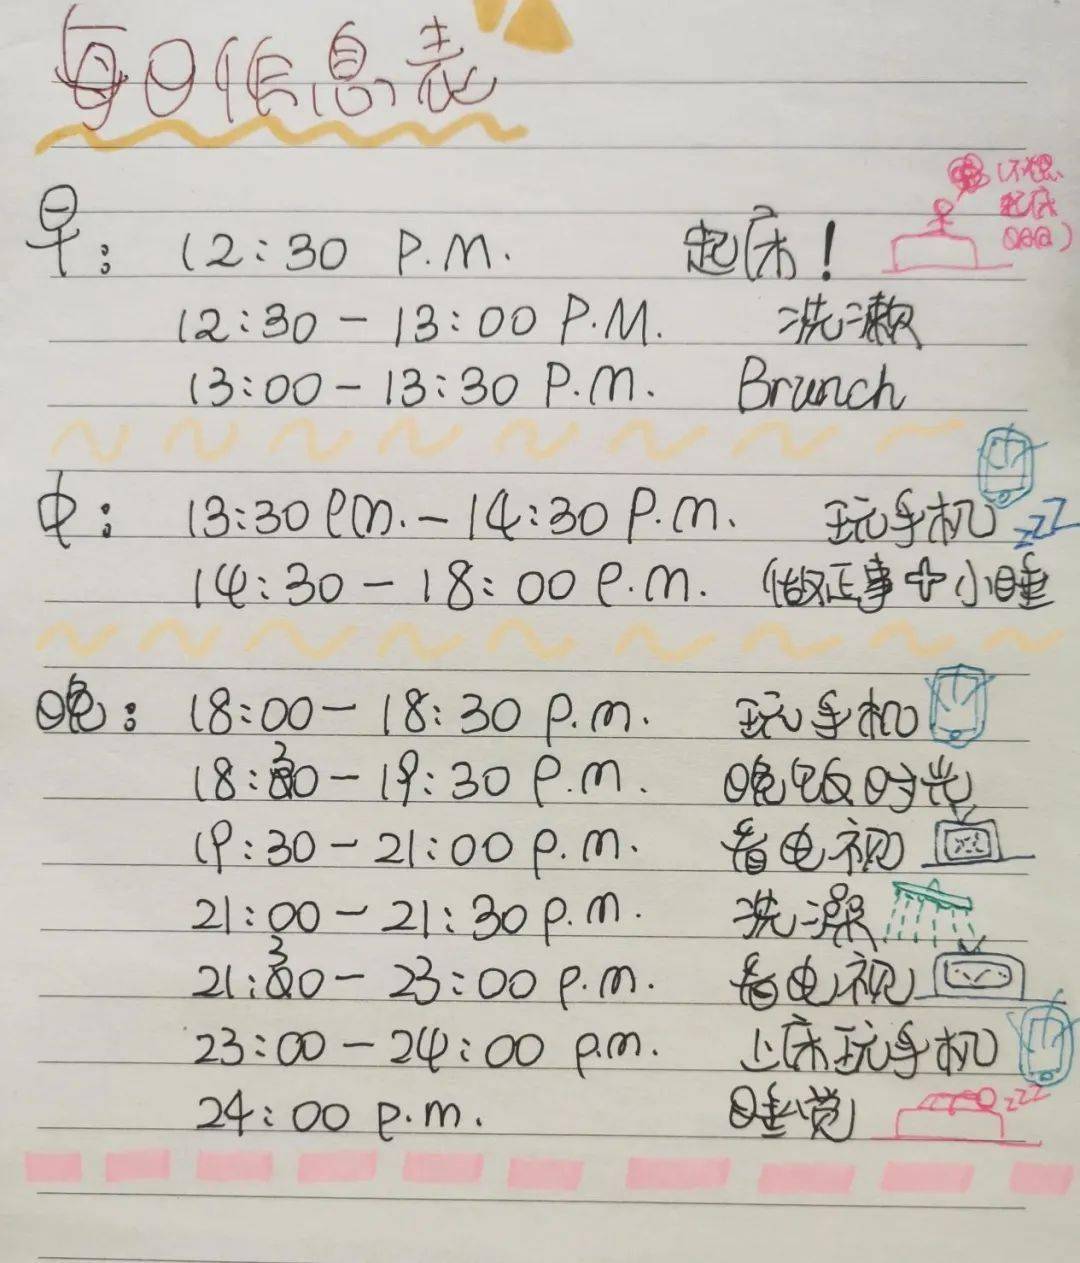 每日作息表
早: 12:30 P.M. 起床! (不想
起床
QAQ)
12:30-13:00 P.M. 洗漱
13:00-13:30 P.M. Brunch
中: 13:30 P.M.-14:30 P.M. 玩手机 zzZ
14:30-18:00 P.M. 做正事+小睡
晚: 18:00-18:30 P.M. 玩手机
18:30-19:30 P.M. 晚饭时光
19:30-21:00 P.M. 看电视
21:00-21:30 P.M. 洗澡
21:30-23:00 P.M. 看电视
23:00-24:00 P.M. 上床玩手机
24:00 P.M. 睡觉 zzZ